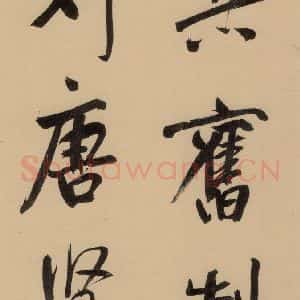 其舊制
刻唐賢
Shufawang.CN